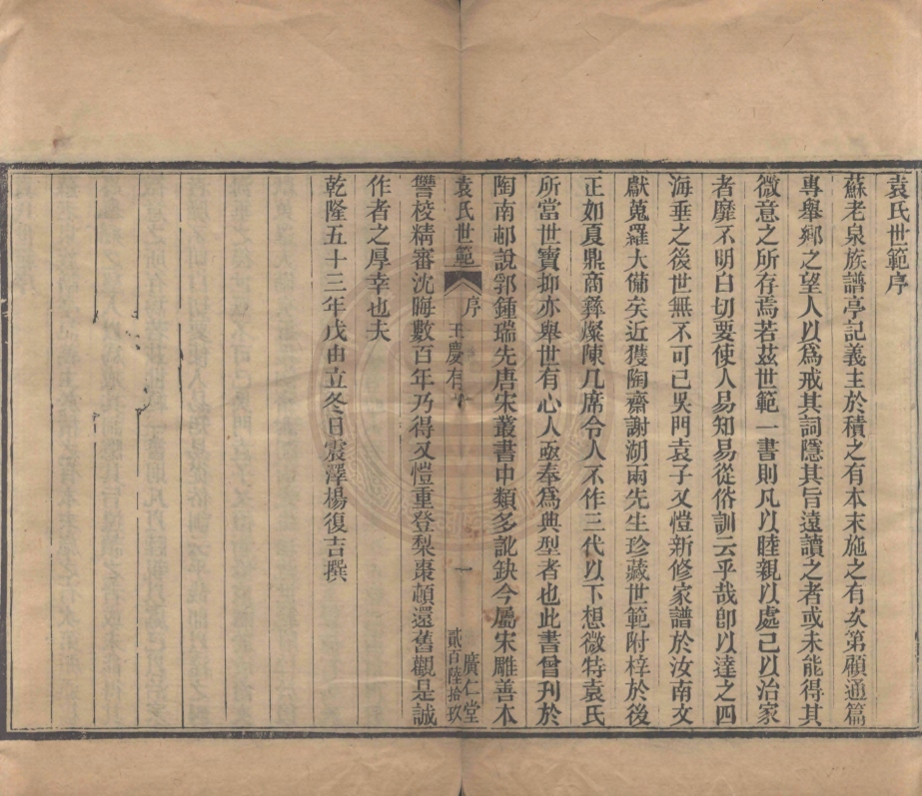 袁氏世範序
蘇老泉族譜亭記義主於積之有本末施之有次第顧通篇
專舉鄉之望人以爲戒其詞隱其旨遠讀之者或未能得其
微意之所存焉若茲世範一書則凡以睦親以處己以治家
者靡不明白切要使人易知易從俗訓云乎哉卽以達之四
海垂之後世無不可已吳門袁子又愷新修家譜於汝南文
獻蒐羅大備矣近獲陶齋謝湖兩先生珍藏世範附梓於後
正如夏鼎商彝燦陳几席令人不作三代以下想微特袁氏
所當世寶抑亦舉世有心人亟奉爲典型者也此書曾刊於
陶南邨說郛鍾瑞先唐宋叢書中類多訛缺今屬宋雕善本
袁氏世範 序 一 廣仁堂
王慶有
貳百陸拾玖
讐校精審沈晦數百年乃得又愷重登梨棗頓還舊觀是誠
作者之厚幸也夫
乾隆五十三年戊申立冬日震澤楊復吉撰